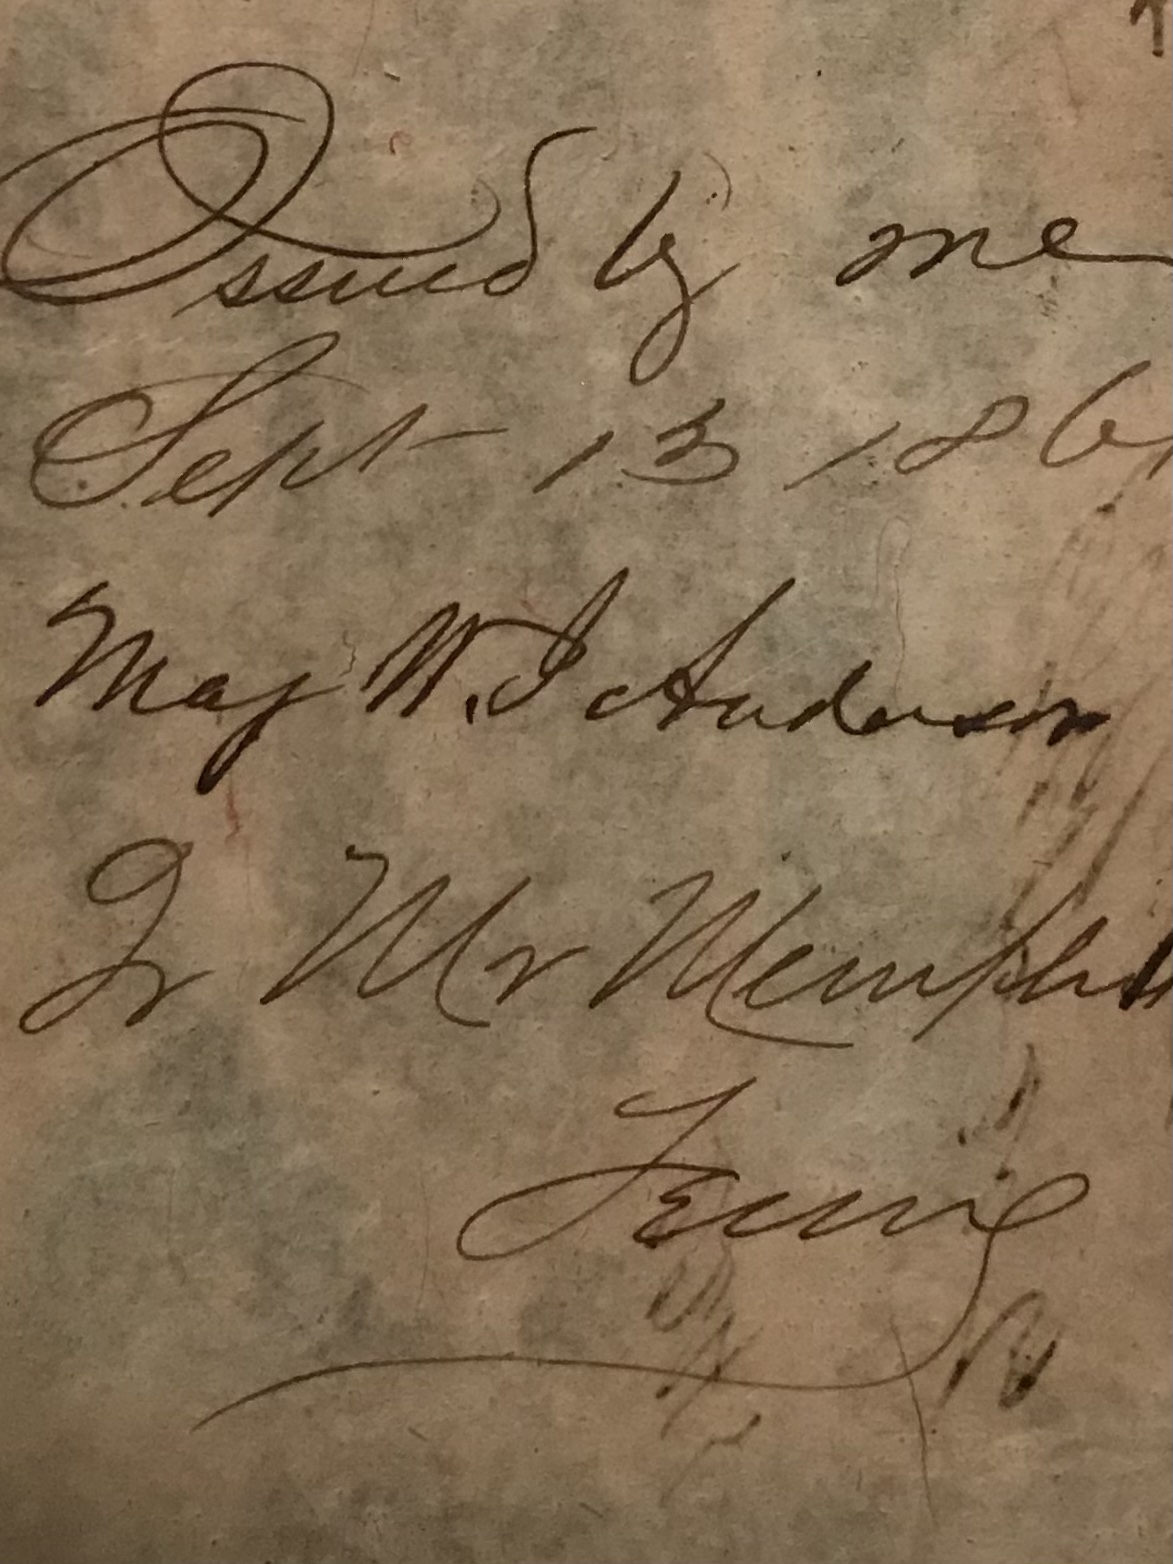 Issued by me
Sept 13 186
Maj W. J Anderson
Qr Mr Memphis
Tenn